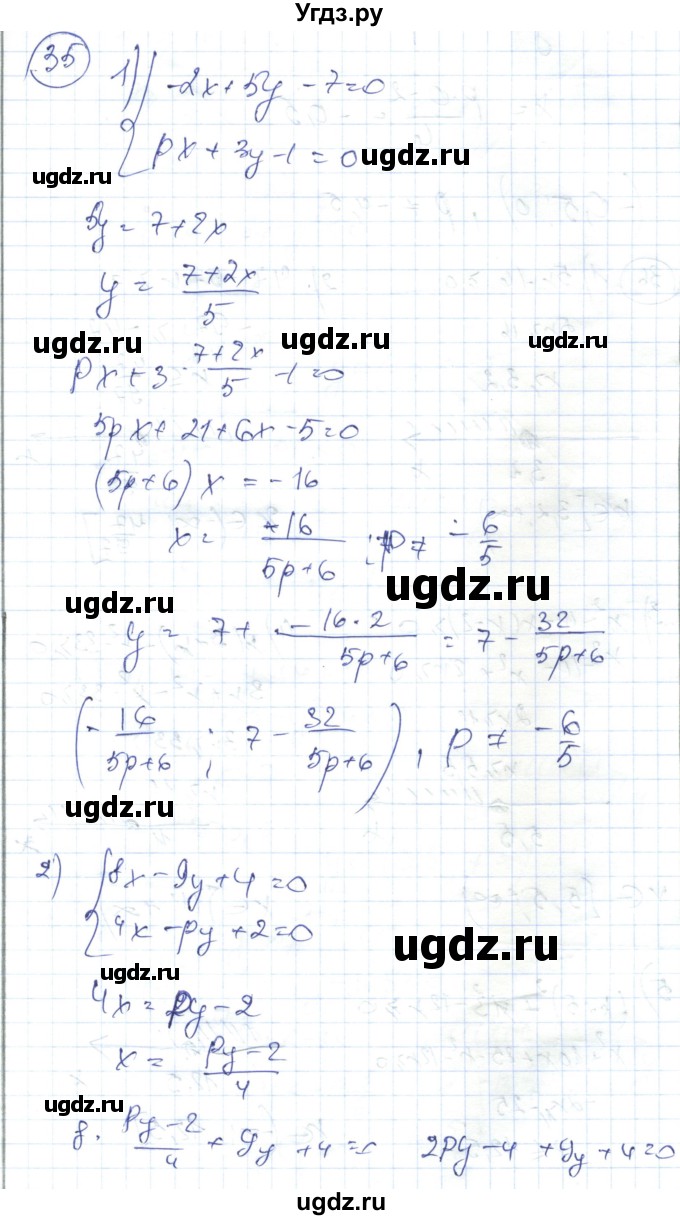 Угдз.ру
35
1) { -2x + 5y - 7 = 0
px + 3y - 1 = 0 ugdz.ru
ugdz.ru
5y = 7 + 2x
y = (7+2x)/5
ugdz.ru ugdz.ru ugdz.ru
px + 3 · (7+2x)/5 - 1 = 0
5px + 21 + 6x - 5 = 0
(5p+6) x = -16
x = -16/(5p+6) ; p ≠ -6/5
ugdz.ru ugdz.ru
y = 7 + (-16·2)/(5p+6) = 7 - 32/(5p+6)
ugdz.ru
(-16/(5p+6) ; 7 - 32/(5p+6)), p ≠ -6/5
ugdz.ru
2) { 8x - 9y + 4 = 0
4x - py + 2 = 0
ugdz.ru
ugdz.ru
4x = py - 2
x = (py-2)/4
ugdz.ru
8 · (py-2)/4 + 9y + 4 = 0 2py - 4 + 9y + 4 = 0
ugdz.ru